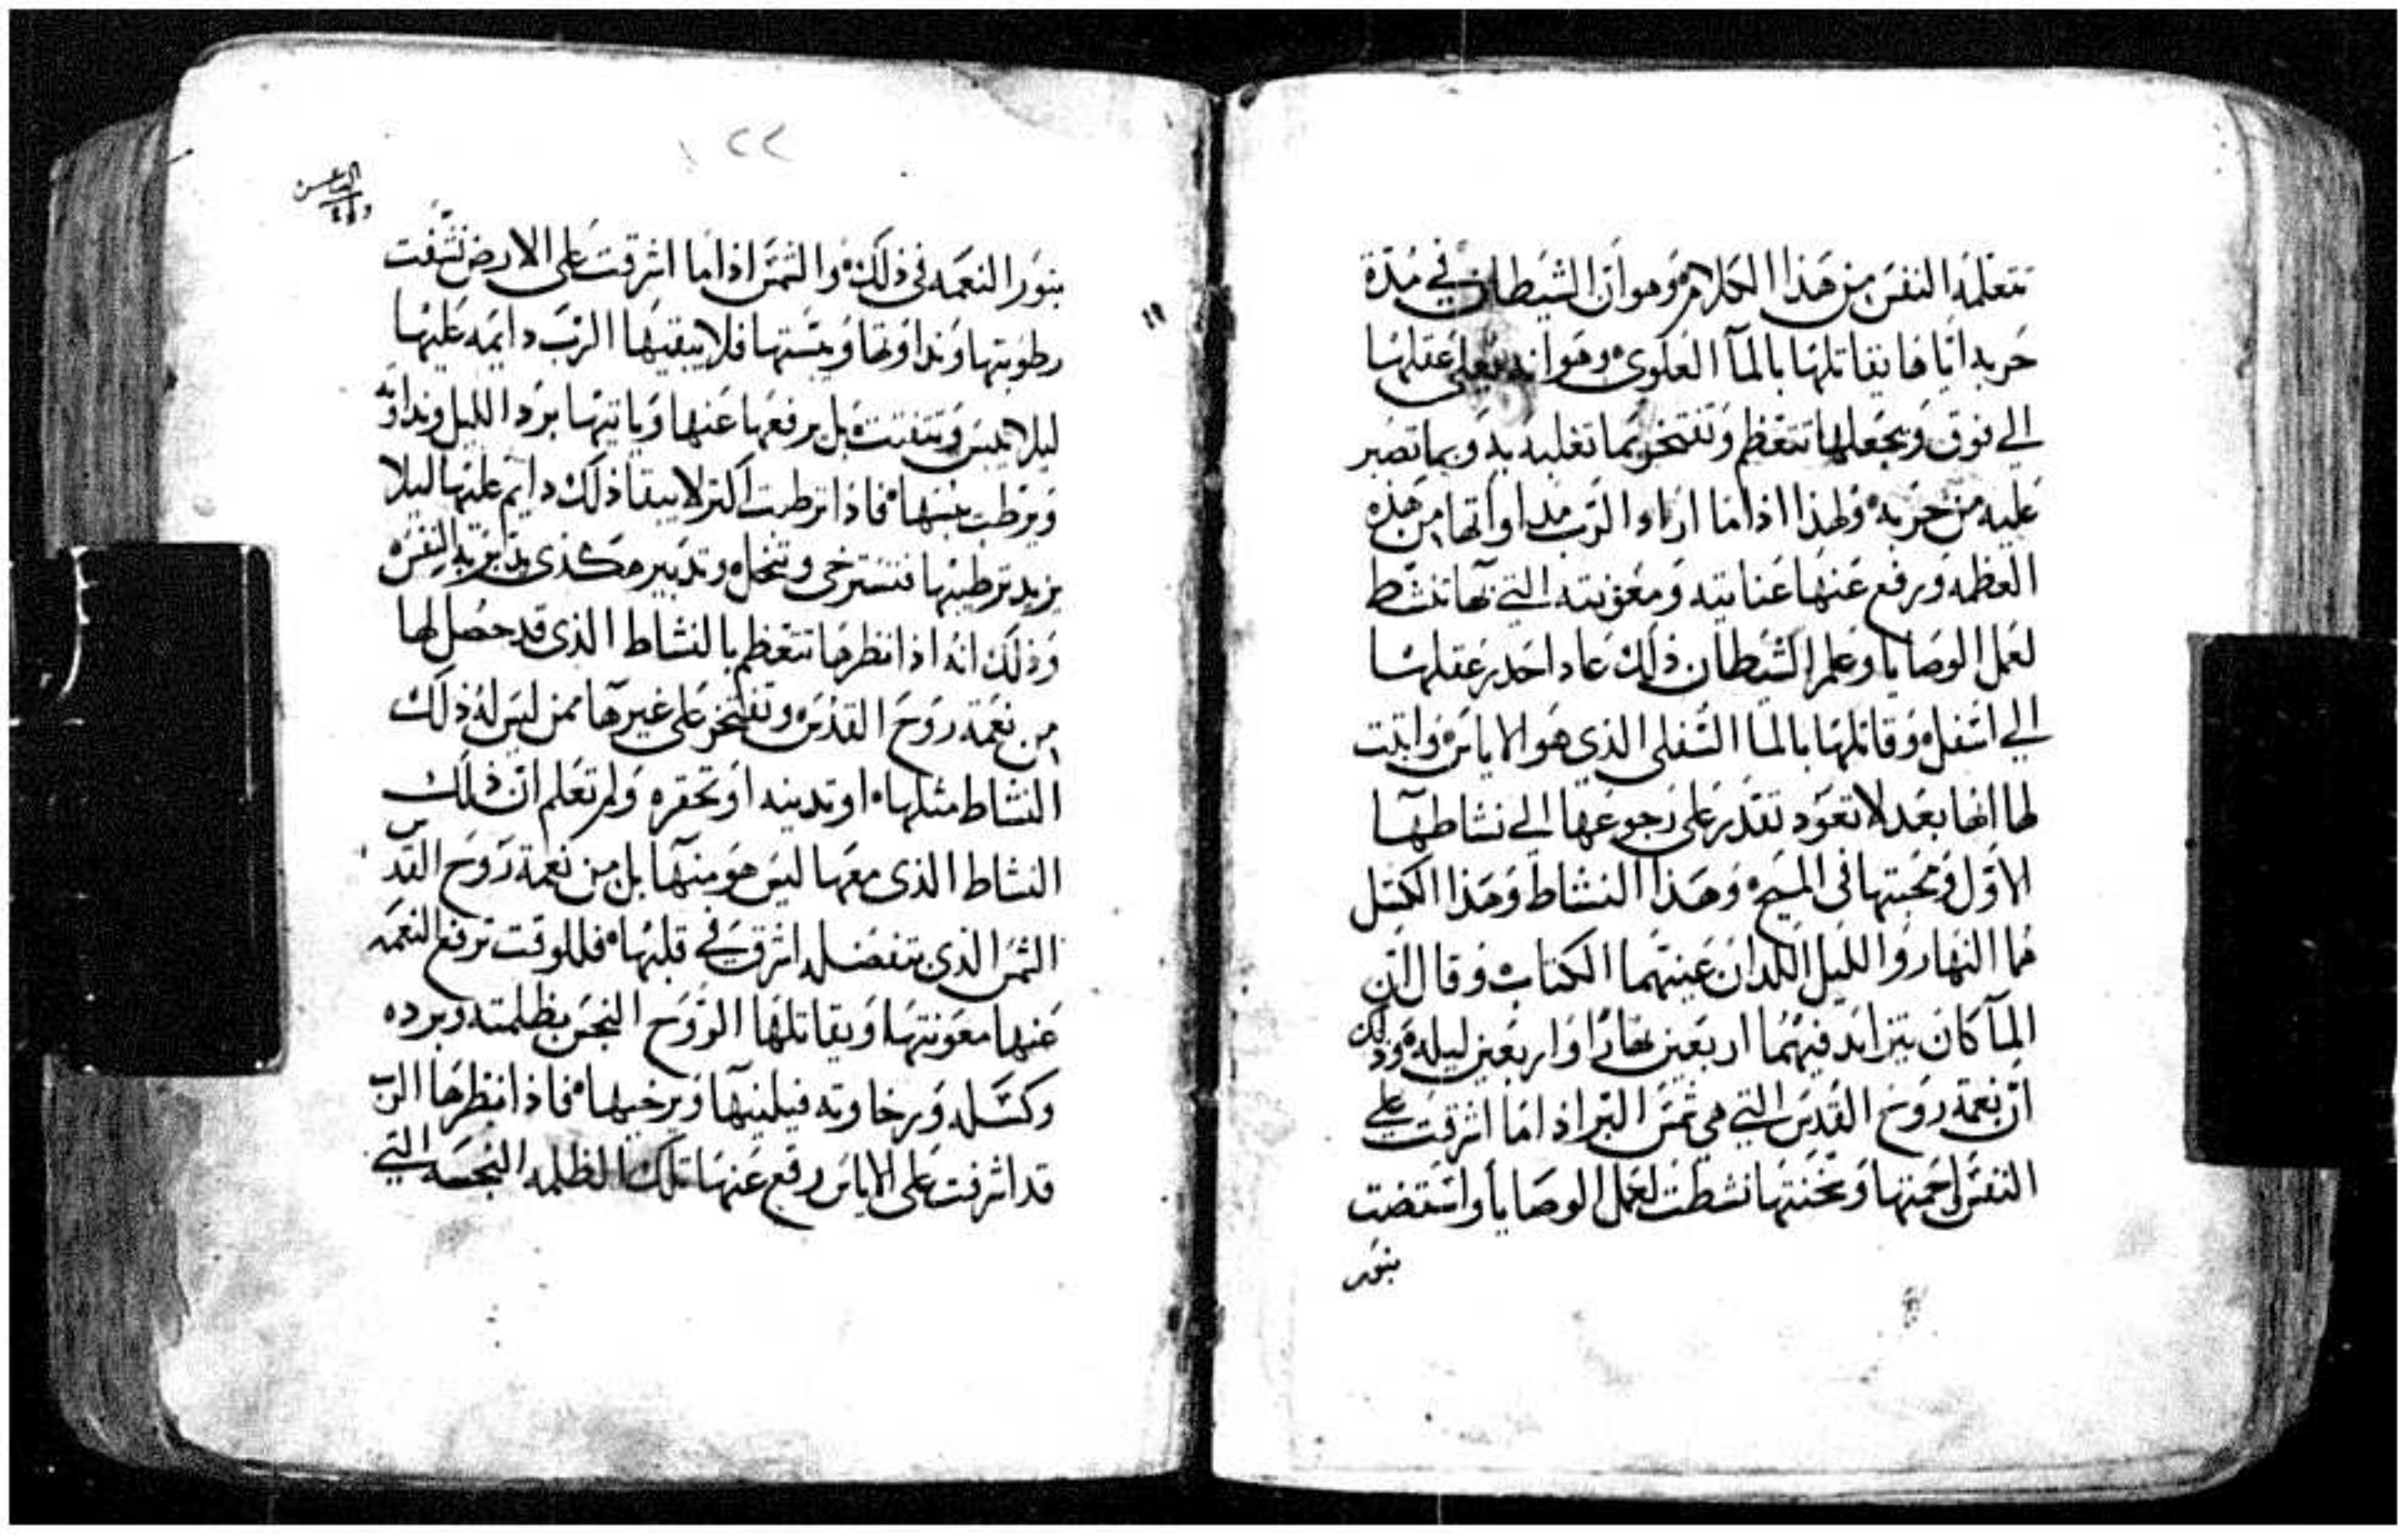 تتعلمه النفس من هذا الكلام وهو ان الشيطان في مدة
حربه اياها يقاتلها بالمآ العلوي وهو انه يعلي عقلها
الى فوق ويجعلها تتعظم وتفتخر بما تغلبه به وبما تصبر
عليه من حربه ولهذا اذا ما اراد الرب مداواتها من هذه
العظمه ورفع عنها عنايته ومعونته التي بها تنشط
لعمل الوصايا وعلم الشيطان ذلك عاد احدر عقلها
الى اسفل وقاتلها بالمآ السفلي الذي هو الاياس واثبت
لها انها بعد لا تعود تقدر على رجوعها الى نشاطها
الاول ومحبتها في المسيح وهذا النشاط وهذا الكسل
هما النهار والليل اللذان عينهما الكتاب وقال ان
المآ كان يتزايد فيهما اربعين نهارا واربعين ليله وذلك
ان نعمة روح القدس التي هي شمس البر اذا ما اشرقت على
النفس احمتها وسخنتها نشطت لعمل الوصايا واستضت
بنور
١٢٢
بنور النعمه في ذلك والشمس اذا ما اشرقت على الارض نشفت
رطوبتها ونداوتها ويبستها فلا يبقيها الرب دايمه عليها
ليلا تيبس وتتفتت بل يرفعها عنها وياتيها برد الليل ونداوته
ويرطب يبسها فاذا ترطبت اكثر لا يبقا ذلك دايم عليها ليلا
يزيد ترطيبها فتسترخي وتنحل وتدبير هكذى يدبر به النفس
وذلك انه اذا نظرها تتعظم بالنشاط الذي قد حصل لها
من نعمة روح القدس وتفتخر على غيرها ممن ليس له ذلك
النشاط مثلها او تدينه او تحقره ولم تعلم ان ذلك
النشاط الذي معها ليس هو منها بل من نعمة روح القدس
الشمس الذي بتفضله اشرق في قلبها فللوقت ترفع النعمه
عنها معونتها ويقاتلها الروح النجس بظلمته وبرده
وكسله ورخاوته فيلينها ويرخيها فاذا نظرها الرب
قد اشرفت على الاياس رفع عنها تلك الظلمه النجسه التي